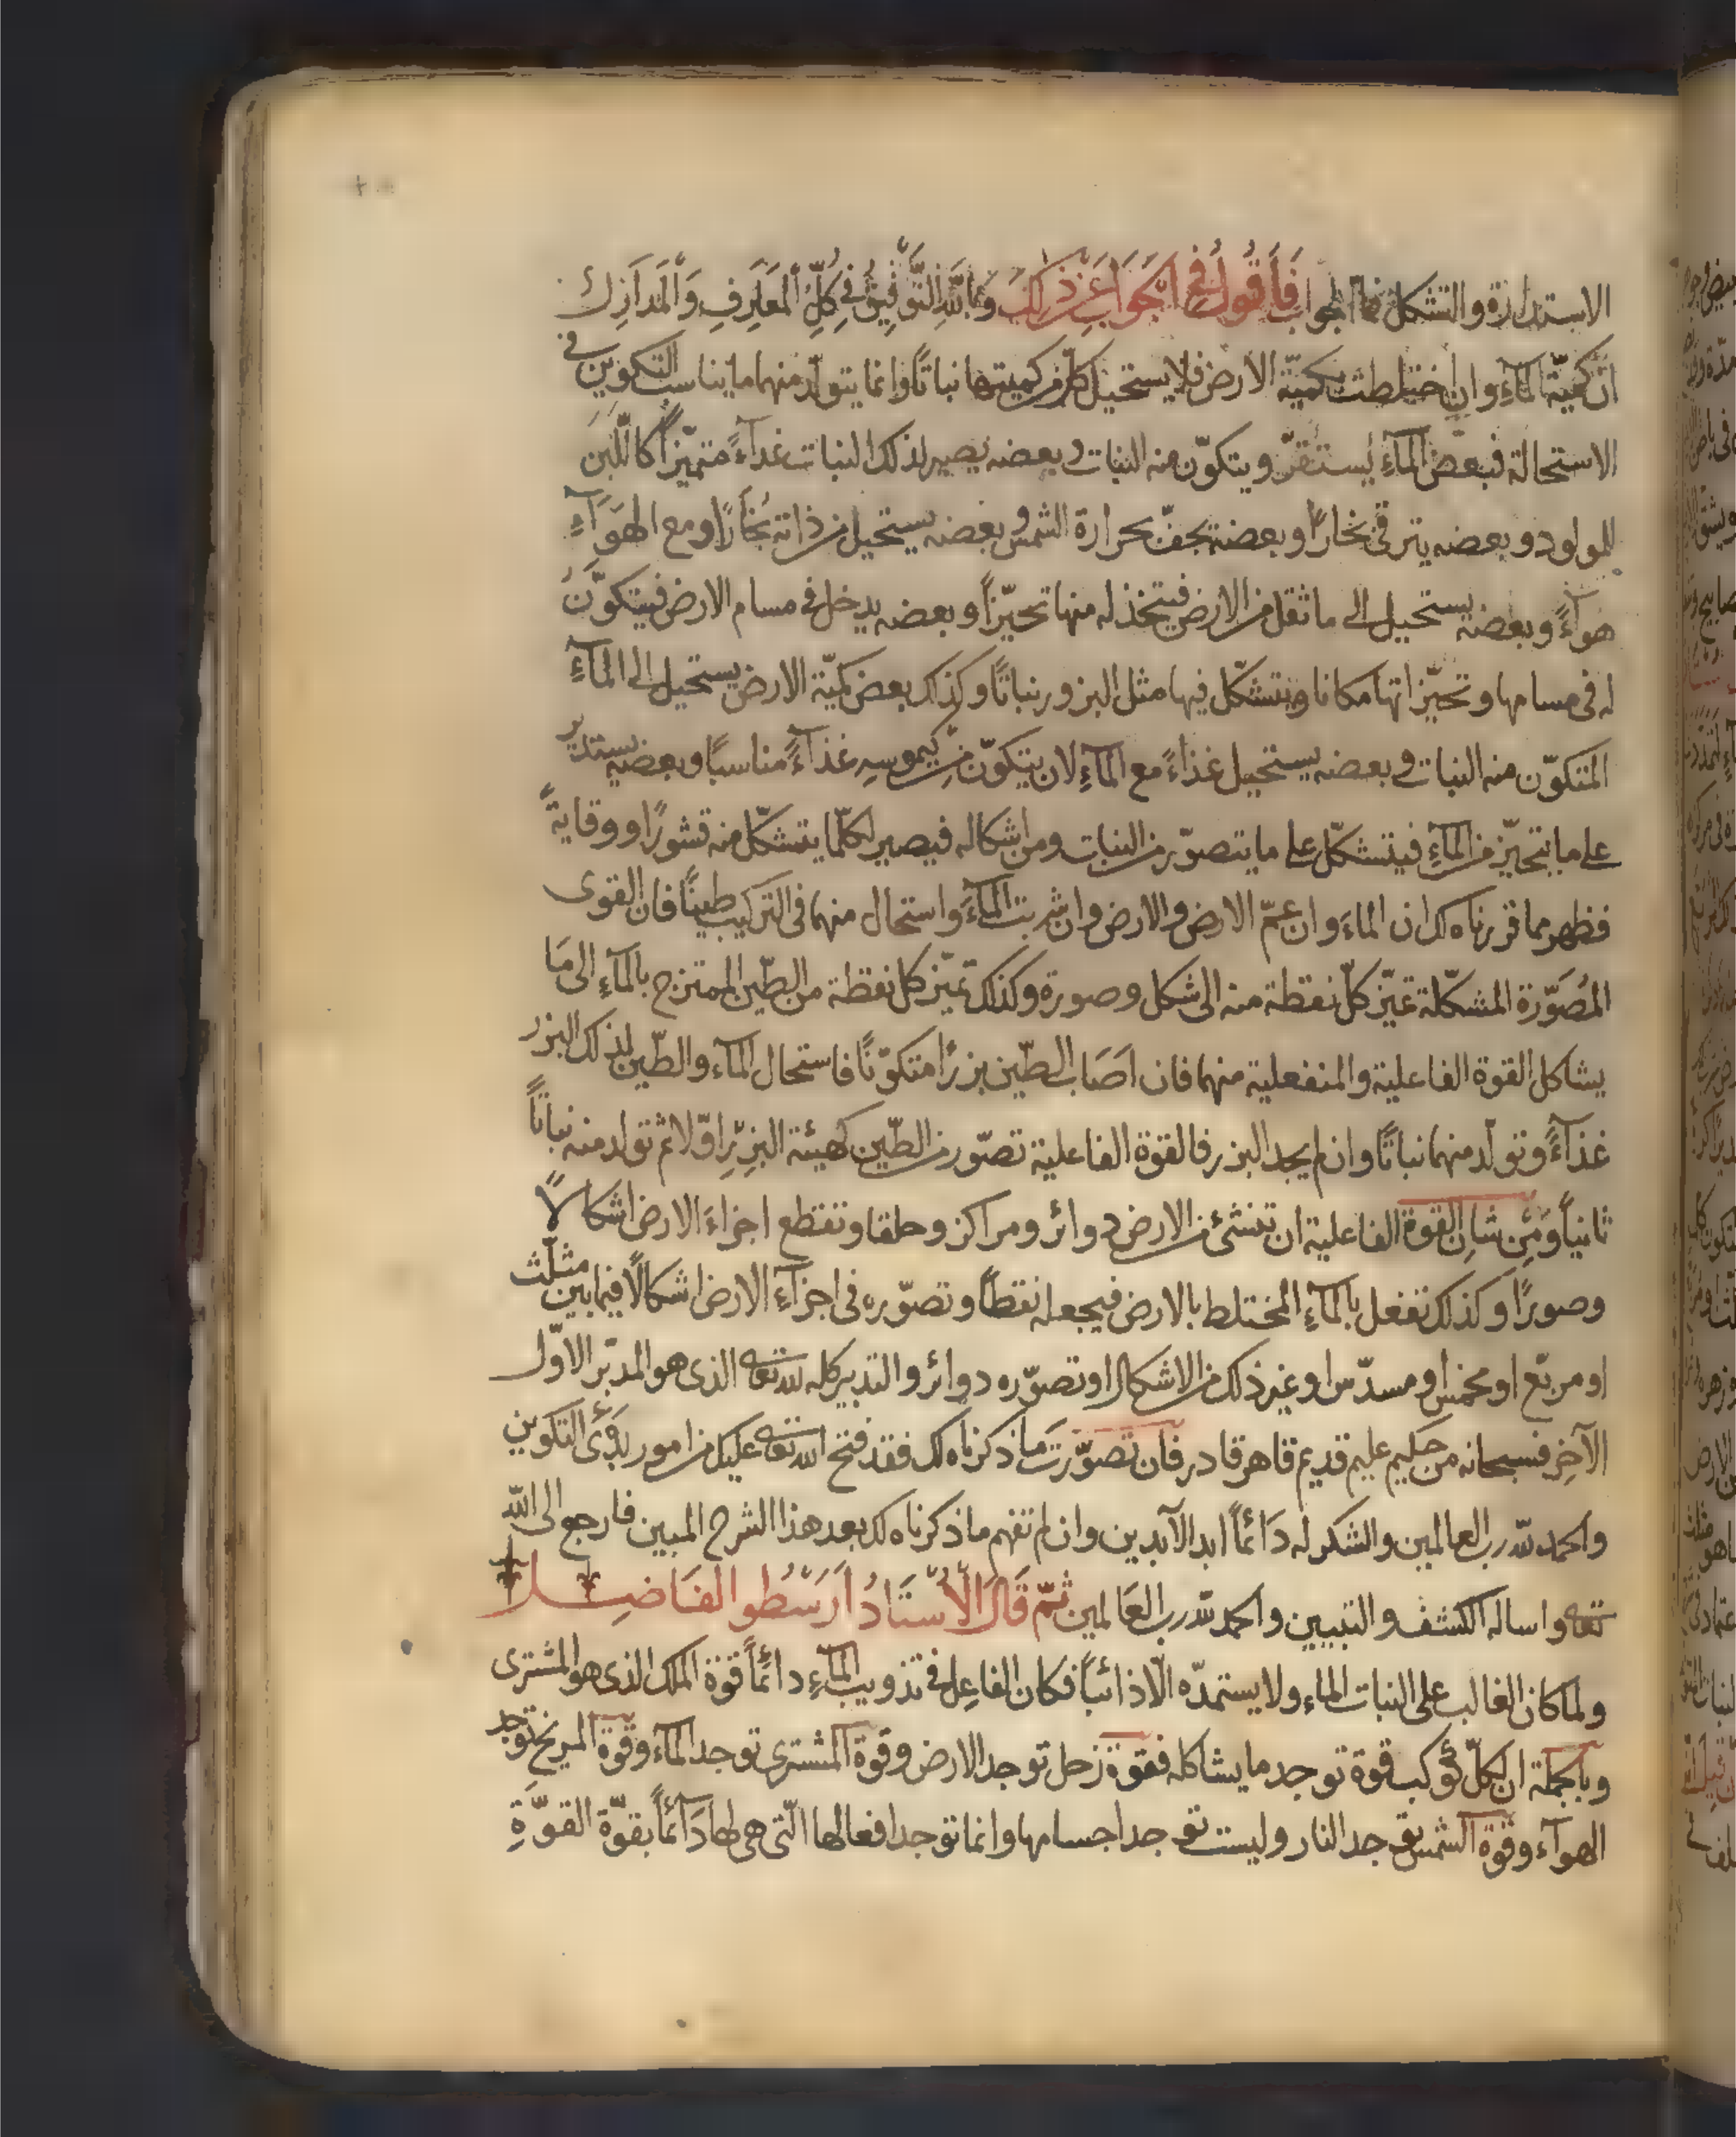 الاستدارة والتشكل فما الجواب فَأَقُولُ فِي الجَوَابِ عَنْ ذَلِكَ وَبِاللّٰهِ التَّوْفِيقُ فِي كُلِّ المَعَارِفِ وَالْمَدَارِكِ
انّ كميّة المآءِ وان اختلطت بكميّة الارض فلا يستحيل كلّ من كميتها نباتًا وانما يتولّد منهما ما يناسب التكوين فى
الاستحالة فبعض المآءِ يستقرّ ويتكوّن منه النبات وبعضه يصير لذلك النبات غدآءً متميّزًا كاللّبن
للمولود وبعضه يترقى بخارًا وبعضه يجفّ بحرارة الشمس وبعضه يستحيل من ذاته بُخارًا ومع الهَوَآءِ
هوآءً وبعضه يستحيل الى ما ثقل من الارض فيتخذ له منها تحيّزًا وبعضه يدخل فى مسام الارض فيتكوّنُ
له فى مسامها وتحيّزاتها مكانا ويتشكّل فيها مثل البزور نباتًا وكذلك بعض كميّة الارض يستحيل الى المآءِ
المتكوّن منه النبات وبعضه يستحيل غذاءً مع المآءِ لان يتكوّن من كيموسِهِ غذآءً مناسبًا وبعضه يستدير
على ما يتحيّز من المآءِ فيتشكّل على ما يتصوّر من النبات ومن اشكاله فيصير لكلّما يتشكّل منه قشورًا ووقايةً
فظهر مما قررناه لك ان الماءَ وان عمّ الارض والارض وان شربت المآءَ واستحال منهما فى التركيب طينًا فان القوى
المُصَوّرة المشكّلة تميّز كلّ نقطة منه الى شكل وصورة وكذلك تميّز كل نقطة من الطّين الممتزج بالمآءِ الى مَا
يشاكل القوة الفاعلية والمنفعلية منهما فان اصَابَ الطّين بزرًا متكوّنًا فاستحال المآء والطّين لذلك البزر
غذآءً وتولّد منهما نباتًا وان لم يجد البزر فالقوة الفاعلية تصوّر من الطّين كهيئة البزِر اوّلا ثم تولد منه نباتاً
ثانياً وَمِن شانِ القوة الفاعلية ان تنشئ من الارض دوائر ومراكز وحلقا وتقطع اجزاءَ الارض اشكالاً
وصورًا وكذلك تفعل بالمآءِ المختلط بالارض فيجعله نقطاً وتصوّره فى اجزآءِ الارض اشكالاً فيما بين مثلّث
او مربّع او مخمس او مسدّس او غير ذلك من الاشكال او تصوّره دوائر والتدبير كله لله تعه الذى هو المدبّر الاوّل
الآخِر فسبحانه من حكيم عليم قديم قاهر قادر فان تصوّرتَ ما ذكرناه لك فقد فتح الله تعه عليك من امور بدؤ التكوين
والحمد لله رب العالمين والشكر له دَائماً ابد الآبدين وان لم تفهم ما ذكرناه لك بعد هذا الشرح المبين فارجع الى الله
تعه واساله الكشف والتبيين والحمد لله رب العَالمين ثمّ قَالَ الأُسْتَادُ اَرَسْطُو الفَاضِل
ولما كان الغالب على النبات الماء ولا يستمدّه الّا ذائباً فكان الفاعِل فى تذويب المآءِ دائماً قوّة الملك الذى هو المشترى
وبالجملة ان لكلّ كوكب قوة توجد ما يشاكله فقوة زحل توجد الارض وقوة المشترى توجد المآء وقوة المريخ توجد
الهوآء وقوة الشمس توجد النار وليست توجد اجسامها وانما توجد افعالها الّتى هى لها دَآئماً بقوّة القوّةِ